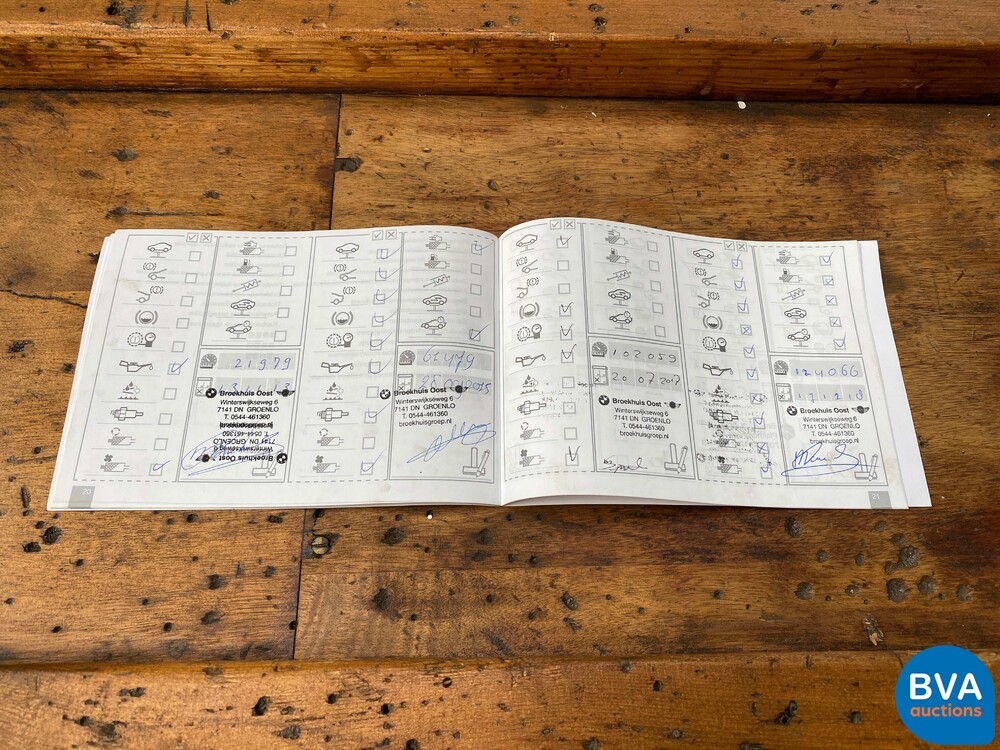 21.979
Broekhuis Oost
Winterswijkseweg 6
7141 DN GROENLO
T. 0544-461360
broekhuisgroep.nl
T. 0544-461360
7141 DN GROENLO
Winterswijkseweg 6
Broekhuis Oost
20
Broekhuis Oost
Winterswijkseweg 6
7141 DN GROENLO
T. 0544-461360
broekhuisgroep.nl
102059
20 07 2017
Broekhuis Oost
Winterswijkseweg 6
7141 DN GROENLO
T. 0544-461360
broekhuisgroep.nl
124066
Broekhuis Oost
Winterswijkseweg 6
7141 DN GROENLO
T. 0544-461360
broekhuisgroep.nl
21
BVA
auctions